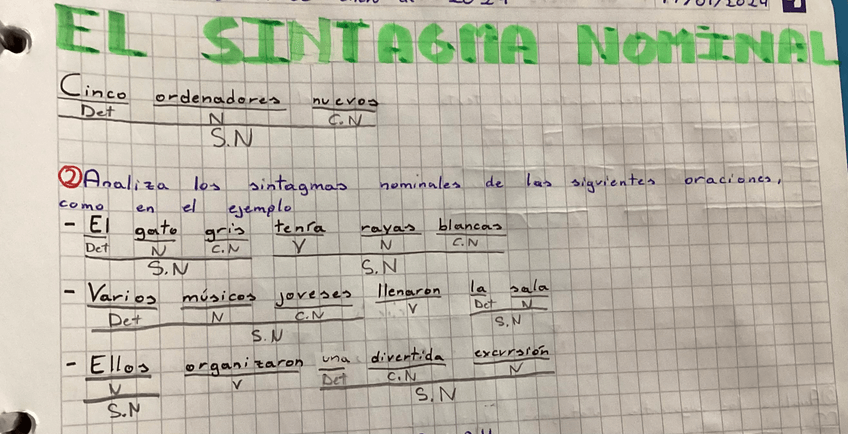 17/01/2024
EL SINTAGMA NOMINAL
Cinco ordenadores nuevos
Det N C.N
S.N
②Analiza los sintagmas nominales de las siguientes oraciones,
como en el ejemplo
- El gato gris tenía rayas blancas
Det N C.N V N C.N
S.N S.N
- Varios músicos joveses llenaron la sala
Det N C.N V Det N
S.N S.N
- Ellos organizaron una divertida excursión
N V Det C.N N
S.N S.N